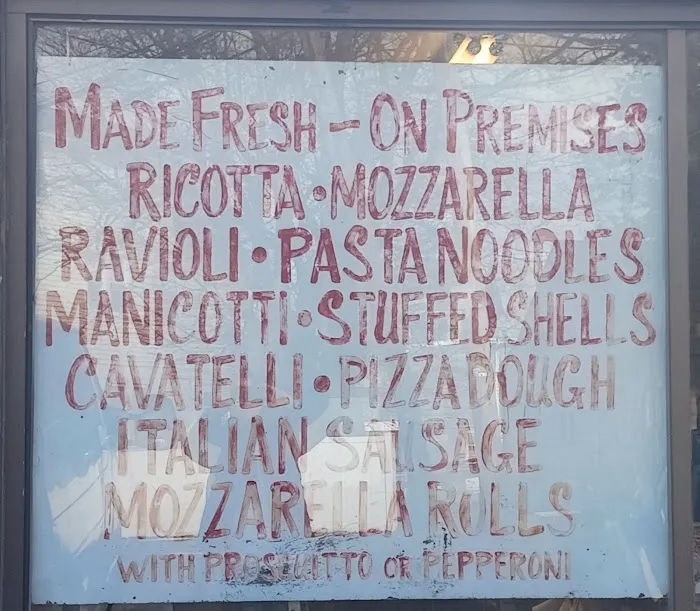 MADE FRESH - ON PREMISES
RICOTTA • MOZZARELLA
RAVIOLI • PASTA NOODLES
MANICOTTI • STUFFED SHELLS
CAVATELLI • PIZZA DOUGH
ITALIAN SAUSAGE
MOZZARELLA ROLLS
WITH PROSCUITTO OR PEPPERONI